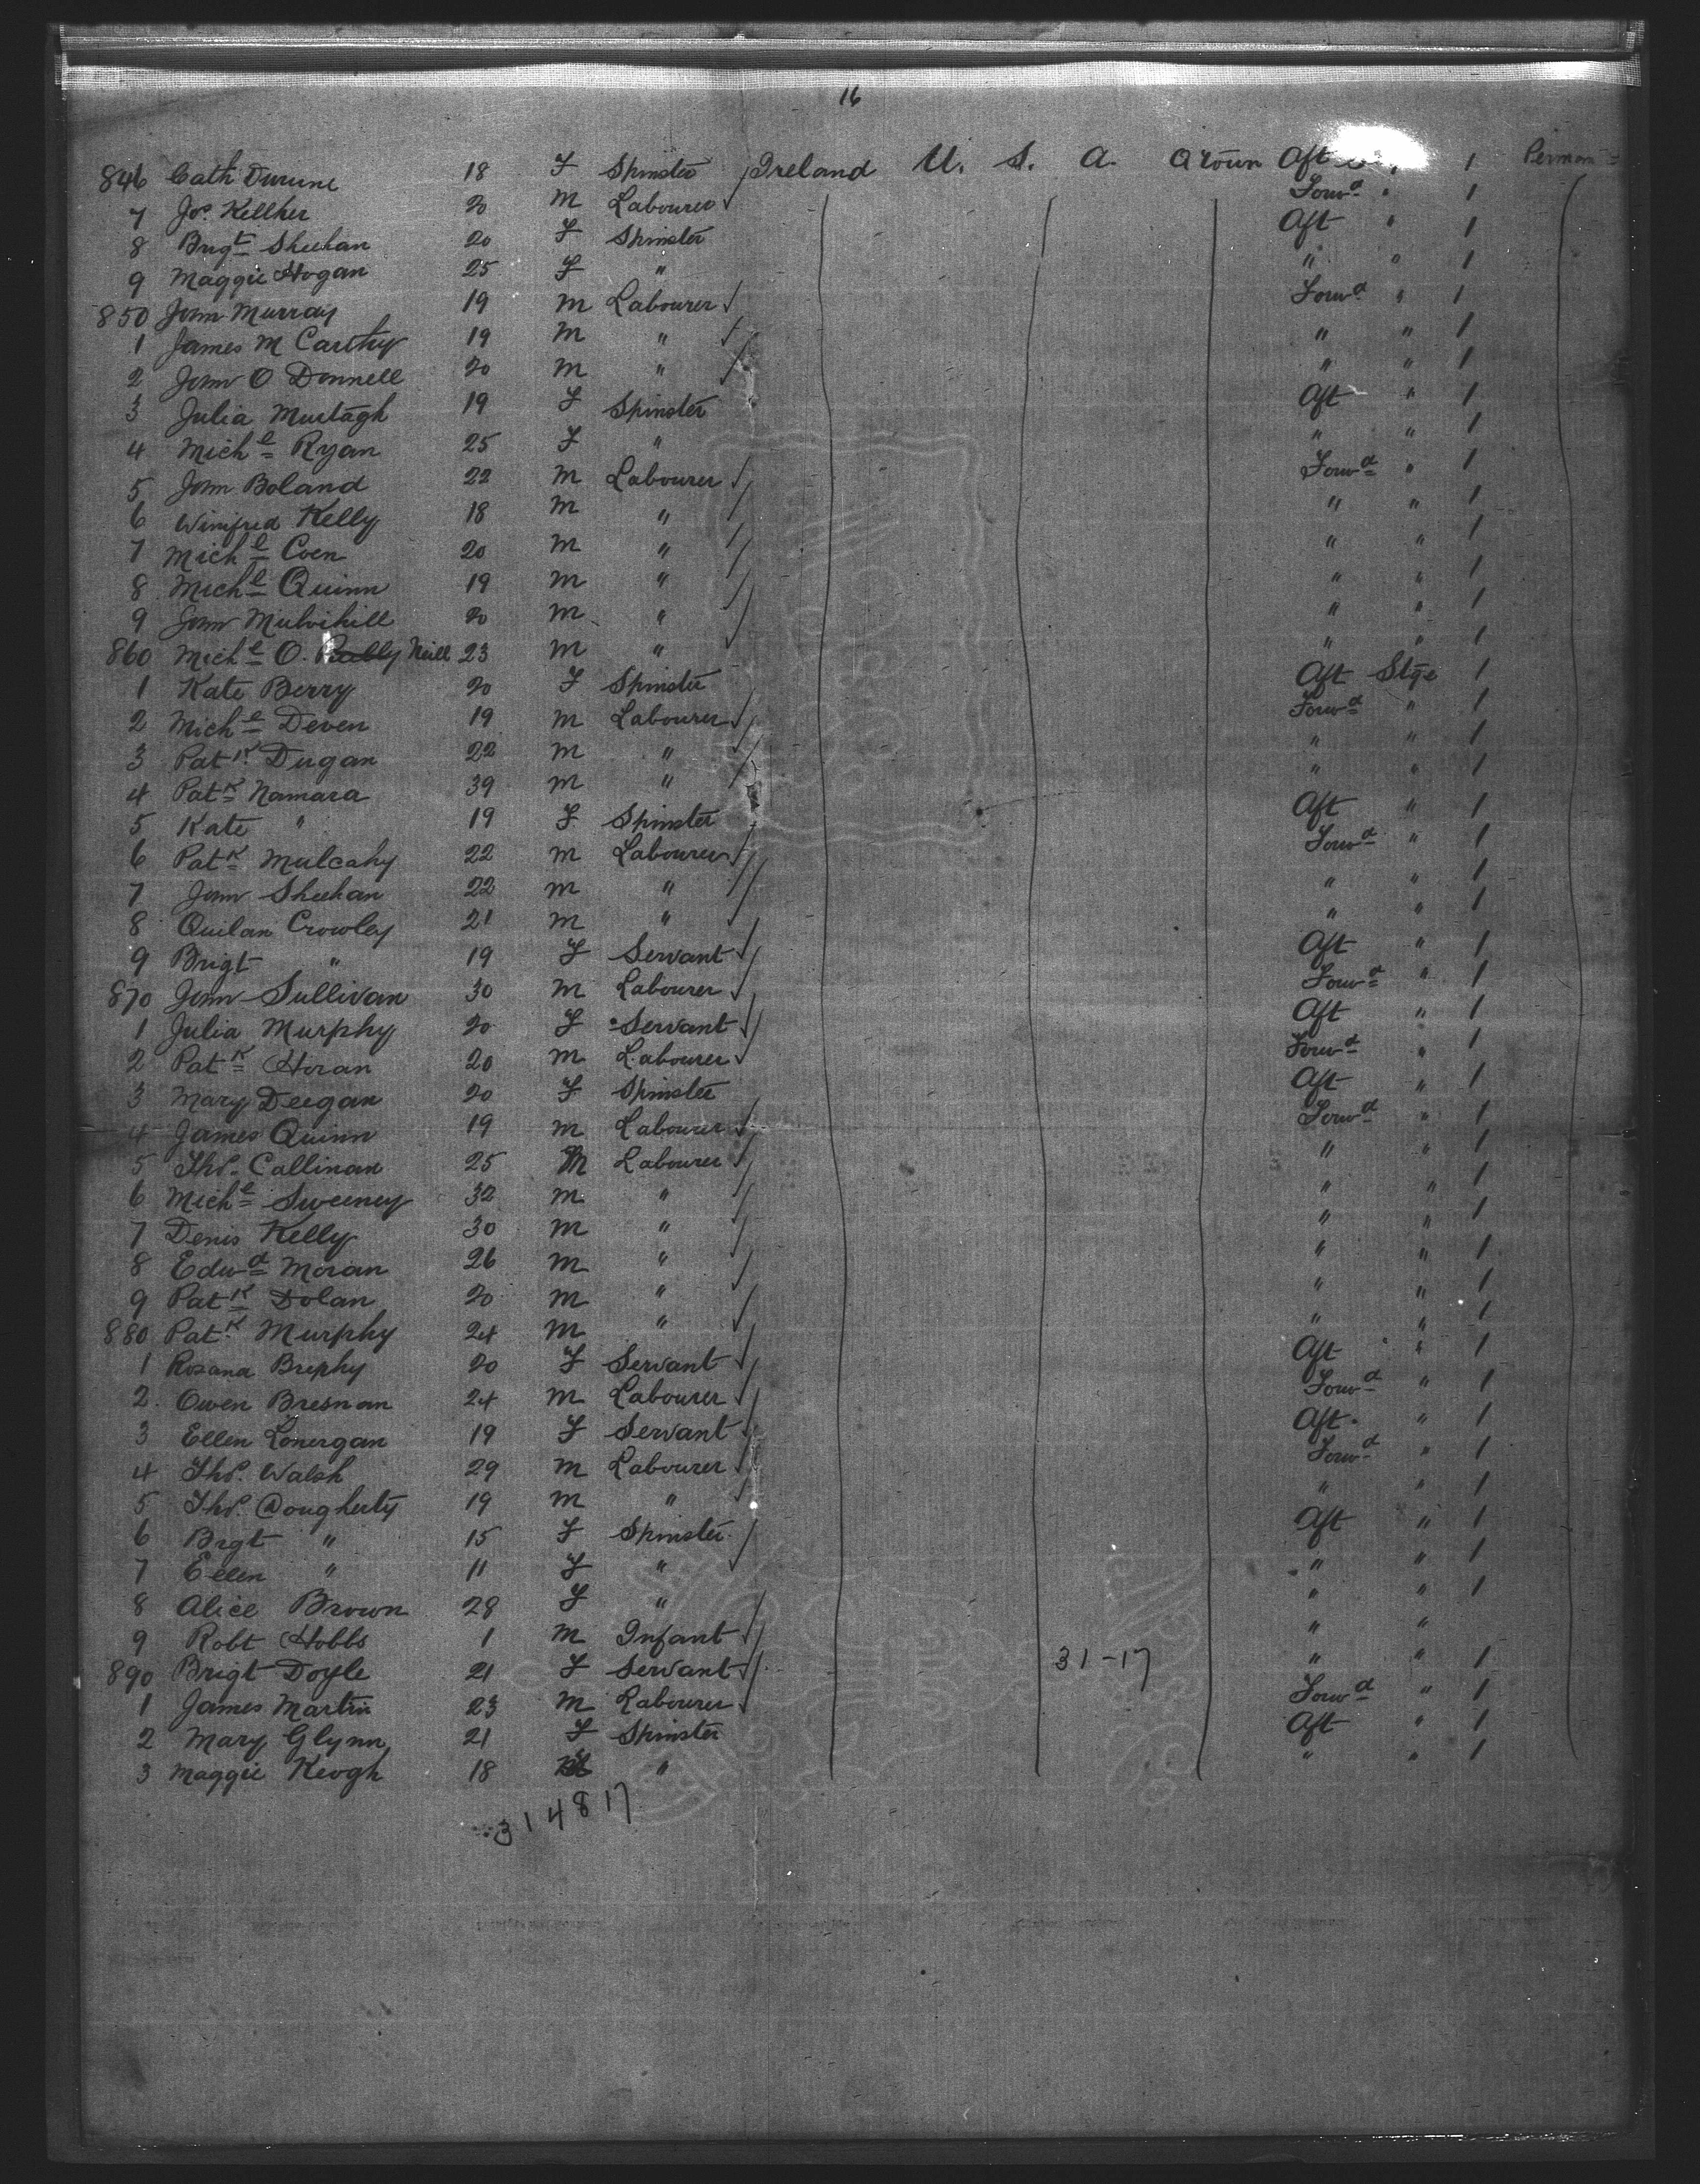 16
846 Cath Durune 18 F Spinster Ireland U. S. A. Q Town Aft 1 Perman
7 Jos. Kellher 20 M Labourer Forwd " 1
8 Brigt Sheehan 20 F Spinster Aft " 1
9 Maggie Hogan 25 F " " " 1
850 John Murray 19 M Labourer Forwd " 1
1 James McCarthy 19 M " " " 1
2 John O Donnell 20 M " " " 1
3 Julia Murtagh 19 F Spinster Aft " 1
4 Michl Ryan 25 F " " " 1
5 John Boland 22 M Labourer Forwd " 1
6 Winifred Kelly 18 M " " " 1
7 Michl Coen 20 M " " " 1
8 Michl Quinn 19 M " " " 1
9 John Mulvihill 20 M " " " 1
860 Michl O. Reilly Neill 23 M " " " 1
1 Kate Berry 20 F Spinster Aft Stge 1
2 Michl Deven 19 M Labourer Forwd " 1
3 Patk Dugan 22 M " " " 1
4 Patk Namara 39 M " " " 1
5 Kate " 19 F Spinster Aft " 1
6 Patk Mulcahy 22 M Labourer Forwd " 1
7 John Sheehan 22 M " " " 1
8 Quilan Crowley 21 M " " " 1
9 Brigt " 19 F Servant Aft " 1
870 John Sullivan 30 M Labourer Forwd " 1
1 Julia Murphy 20 F Servant Aft " 1
2 Patk Horan 20 M Labourer Forwd " 1
3 Mary Deegan 20 F Spinster Aft " 1
4 James Quinn 19 M Labourer Forwd " 1
5 Thos. Callinan 25 M Labourer " " 1
6 Michl Sweeney 32 M " " " 1
7 Denis Kelly 30 M " " " 1
8 Edwd Moran 26 M " " " 1
9 Patk Dolan 20 M " " " 1
880 Patk Murphy 24 M " " " 1
1 Rosana Brephy 20 F Servant Aft " 1
2 Owen Bresnan 24 M Labourer Forwd " 1
3 Ellen Lonergan 19 F Servant Aft " 1
4 Thos. Walsh 29 M Labourer Forwd " 1
5 Thos. Dougherty 19 M " " " 1
6 Brgt " 15 F Spinster Aft " 1
7 Ellen " 11 F " " " 1
8 Alice Brown 28 F " " " 1
9 Robt Hobbs 1 M Infant " "
890 Brigt Doyle 21 F Servant 31-17 " " 1
1 James Martin 23 M Labourer Forwd " 1
2 Mary Glynn 21 F Spinster Aft " 1
3 Maggie Keogh 18 " " " 1
314817